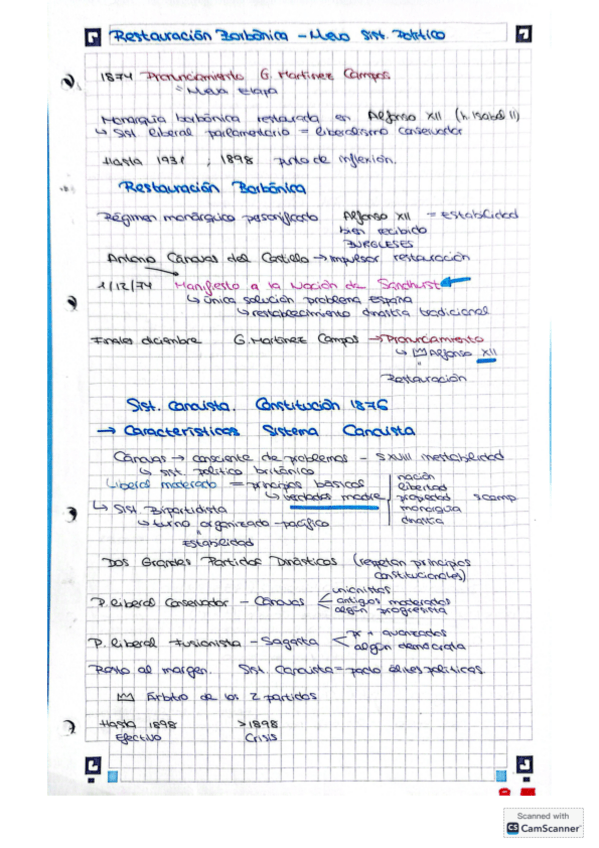 Restauración Borbónica - Nuevo Sist. Político
1874 Pronunciamiento G. Martínez Campos
= Nueva etapa
Monarquía borbónica restaurada en Alfonso XII (h. Isabel II)
↳ Sist. liberal parlamentario = liberalismo conservador
Hasta 1931, 1898 punto de inflexión.
Restauración Borbónica
Régimen monárquico personificado Alfonso XII = Estabilidad
bien recibido
BURGUESES
Antonio Cánovas del Castillo → impulsor restauración
1/12/74 Manifiesto a la Nación de Sandhurst
↳ única solución problema españa
↳ restablecimiento dinastía tradicional
Finales diciembre G. Martínez Campos → Pronunciamiento
↳ Alfonso XII
Restauración
Sist. Canovista. Constitución 1876
→ Características Sistema Canovista
Cánovas → consciente de problemas - SXVIII inestabilidad
↳ sist. político británico
Liberal moderado = principios básicos
↳ verdades madre
nación
libertad
propiedad
monarquía
dinastía
↳ Sist. Bipartidista
↳ turno organizado-pacífico
Estabilidad
Dos Grandes Partidos Dinásticos (respetan principios
constitucionales)
P. liberal Conservador - Cánovas
unionistas
antiguos moderados
algún progresista
P. liberal Fusionista - Sagasta
+ avanzados
algún demócrata
Resto al margen. Sist. Canovista = pacto élites políticas
Árbitro de los 2 partidos
Hasta 1898 >1898
Efectivo Crisis
Scanned with
CS CamScanner